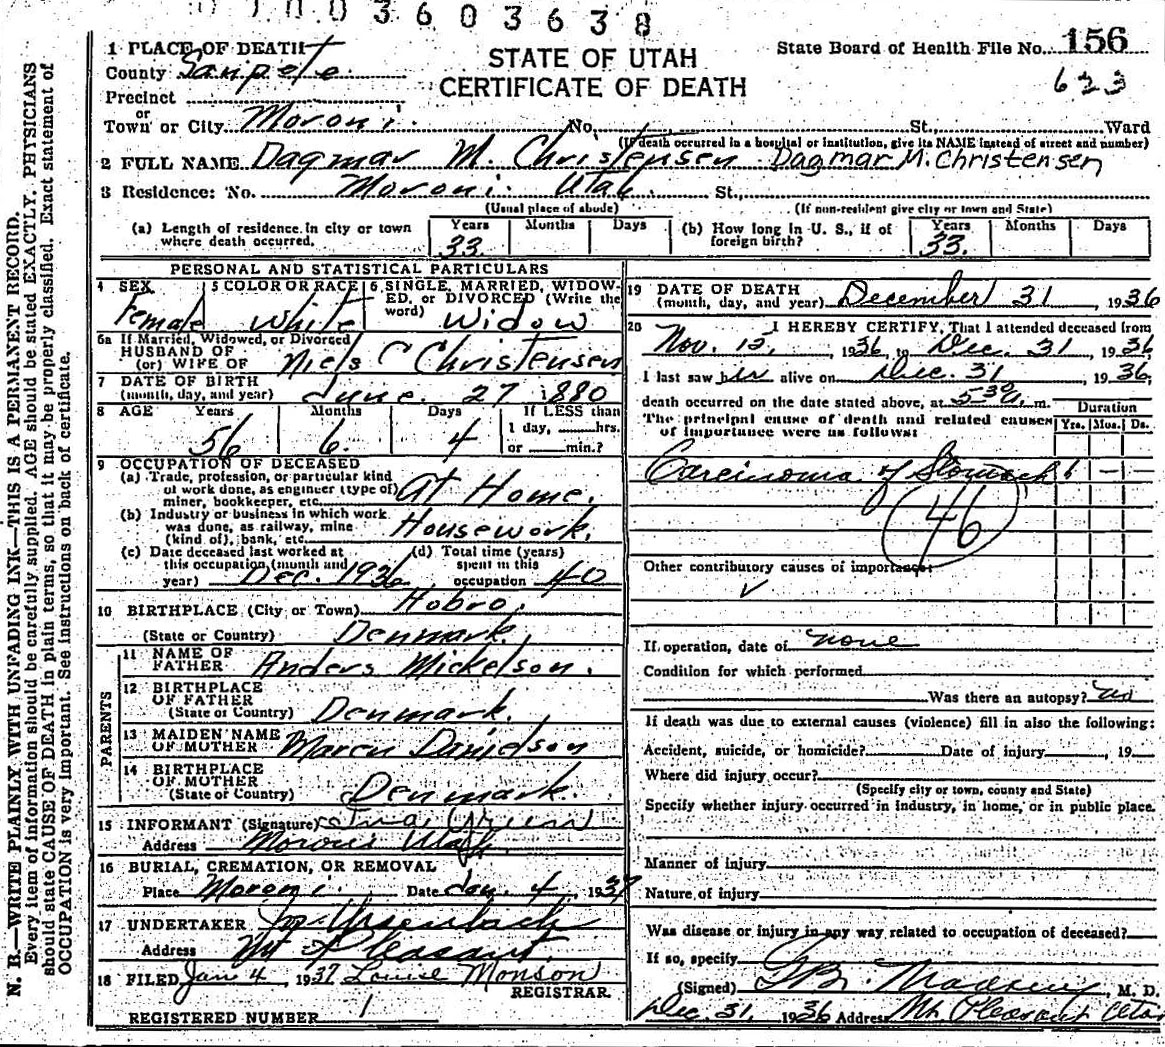 0 1 0 0 3 6 0 3 6 3 8
STATE OF UTAH
CERTIFICATE OF DEATH
State Board of Health File No. 156
623
1 PLACE OF DEATH
County Sanpete
Precinct
or
Town or City Moroni. No. St., Ward
(If death occurred in a hospital or institution, give its NAME instead of street and number)
2 FULL NAME Dagmar M. Christensen Dagmar M. Christensen
3 Residence: No. Moroni. Utah. St.,
(Usual place of abode) (If non-resident give city or town and State)
(a) Length of residence in city or town where death occurred. Years 33. Months Days
(b) How long in U. S., if of foreign birth? Years 33. Months Days
PERSONAL AND STATISTICAL PARTICULARS
4 SEX Female
5 COLOR OR RACE White
6 SINGLE, MARRIED, WIDOWED, or DIVORCED (Write the word) Widow
6a If Married, Widowed, or Divorced
HUSBAND OF
(or) WIFE OF Niels C Christensen
7 DATE OF BIRTH
(month, day, and year) June. 27 1880
8 AGE Years 56 Months 6. Days 4 If LESS than 1 day, hrs. or min.?
9 OCCUPATION OF DECEASED
(a) Trade, profession, or particular kind of work done, as engineer (type of) miner, bookkeeper, etc. At Home.
(b) Industry or business in which work was done, as railway, mine (kind of), bank, etc. Housework.
(c) Date deceased last worked at this occupation (month and year) Dec. 1936
(d) Total time (years) spent in this occupation 40
10 BIRTHPLACE (City or Town) Hobro.
(State or Country) Denmark.
PARENTS
11 NAME OF FATHER Anders Mickelson.
12 BIRTHPLACE OF FATHER
(State or Country) Denmark.
13 MAIDEN NAME OF MOTHER Maren Danielson
14 BIRTHPLACE OF MOTHER
(State or Country) Denmark.
15 INFORMANT (Signature)
Address Moroni Utah.
16 BURIAL, CREMATION, OR REMOVAL
Place Moroni. Date Jan. 4, 1937
17 UNDERTAKER
Address Mt Pleasant.
18 FILED Jan 4, 1937 Louise Monson
REGISTRAR.
REGISTERED NUMBER 1
19 DATE OF DEATH
(month, day, and year) December 31 1936
20 I HEREBY CERTIFY, That I attended deceased from
Nov. 12, 1936, to Dec. 31 1936
I last saw her alive on Dec. 31, 1936,
death occurred on the date stated above, at 5 30 a. m.
The principal cause of death and related causes of importance were as follows:
Duration
Yrs. Mos. Ds.
Carcinoma of Stomach 1 — —
46
Other contributory causes of importance:
✓
If operation, date of none
Condition for which performed
Was there an autopsy? no
If death was due to external causes (violence) fill in also the following:
Accident, suicide, or homicide? Date of injury , 19
Where did injury occur?
(Specify city or town, county and State)
Specify whether injury occurred in industry, in home, or in public place.
Manner of injury
Nature of injury
Was disease or injury in any way related to occupation of deceased?
If so, specify
(Signed) M. D.
Dec. 31, 1936 Address Mt Pleasant Utah
N. B.—WRITE PLAINLY WITH UNFADING INK—THIS IS A PERMANENT RECORD.
Every item of information should be carefully supplied. AGE should be stated EXACTLY. PHYSICIANS
should state CAUSE OF DEATH in plain terms, so that it may be properly classified. Exact statement of
OCCUPATION is very important. See instructions on back of certificate.